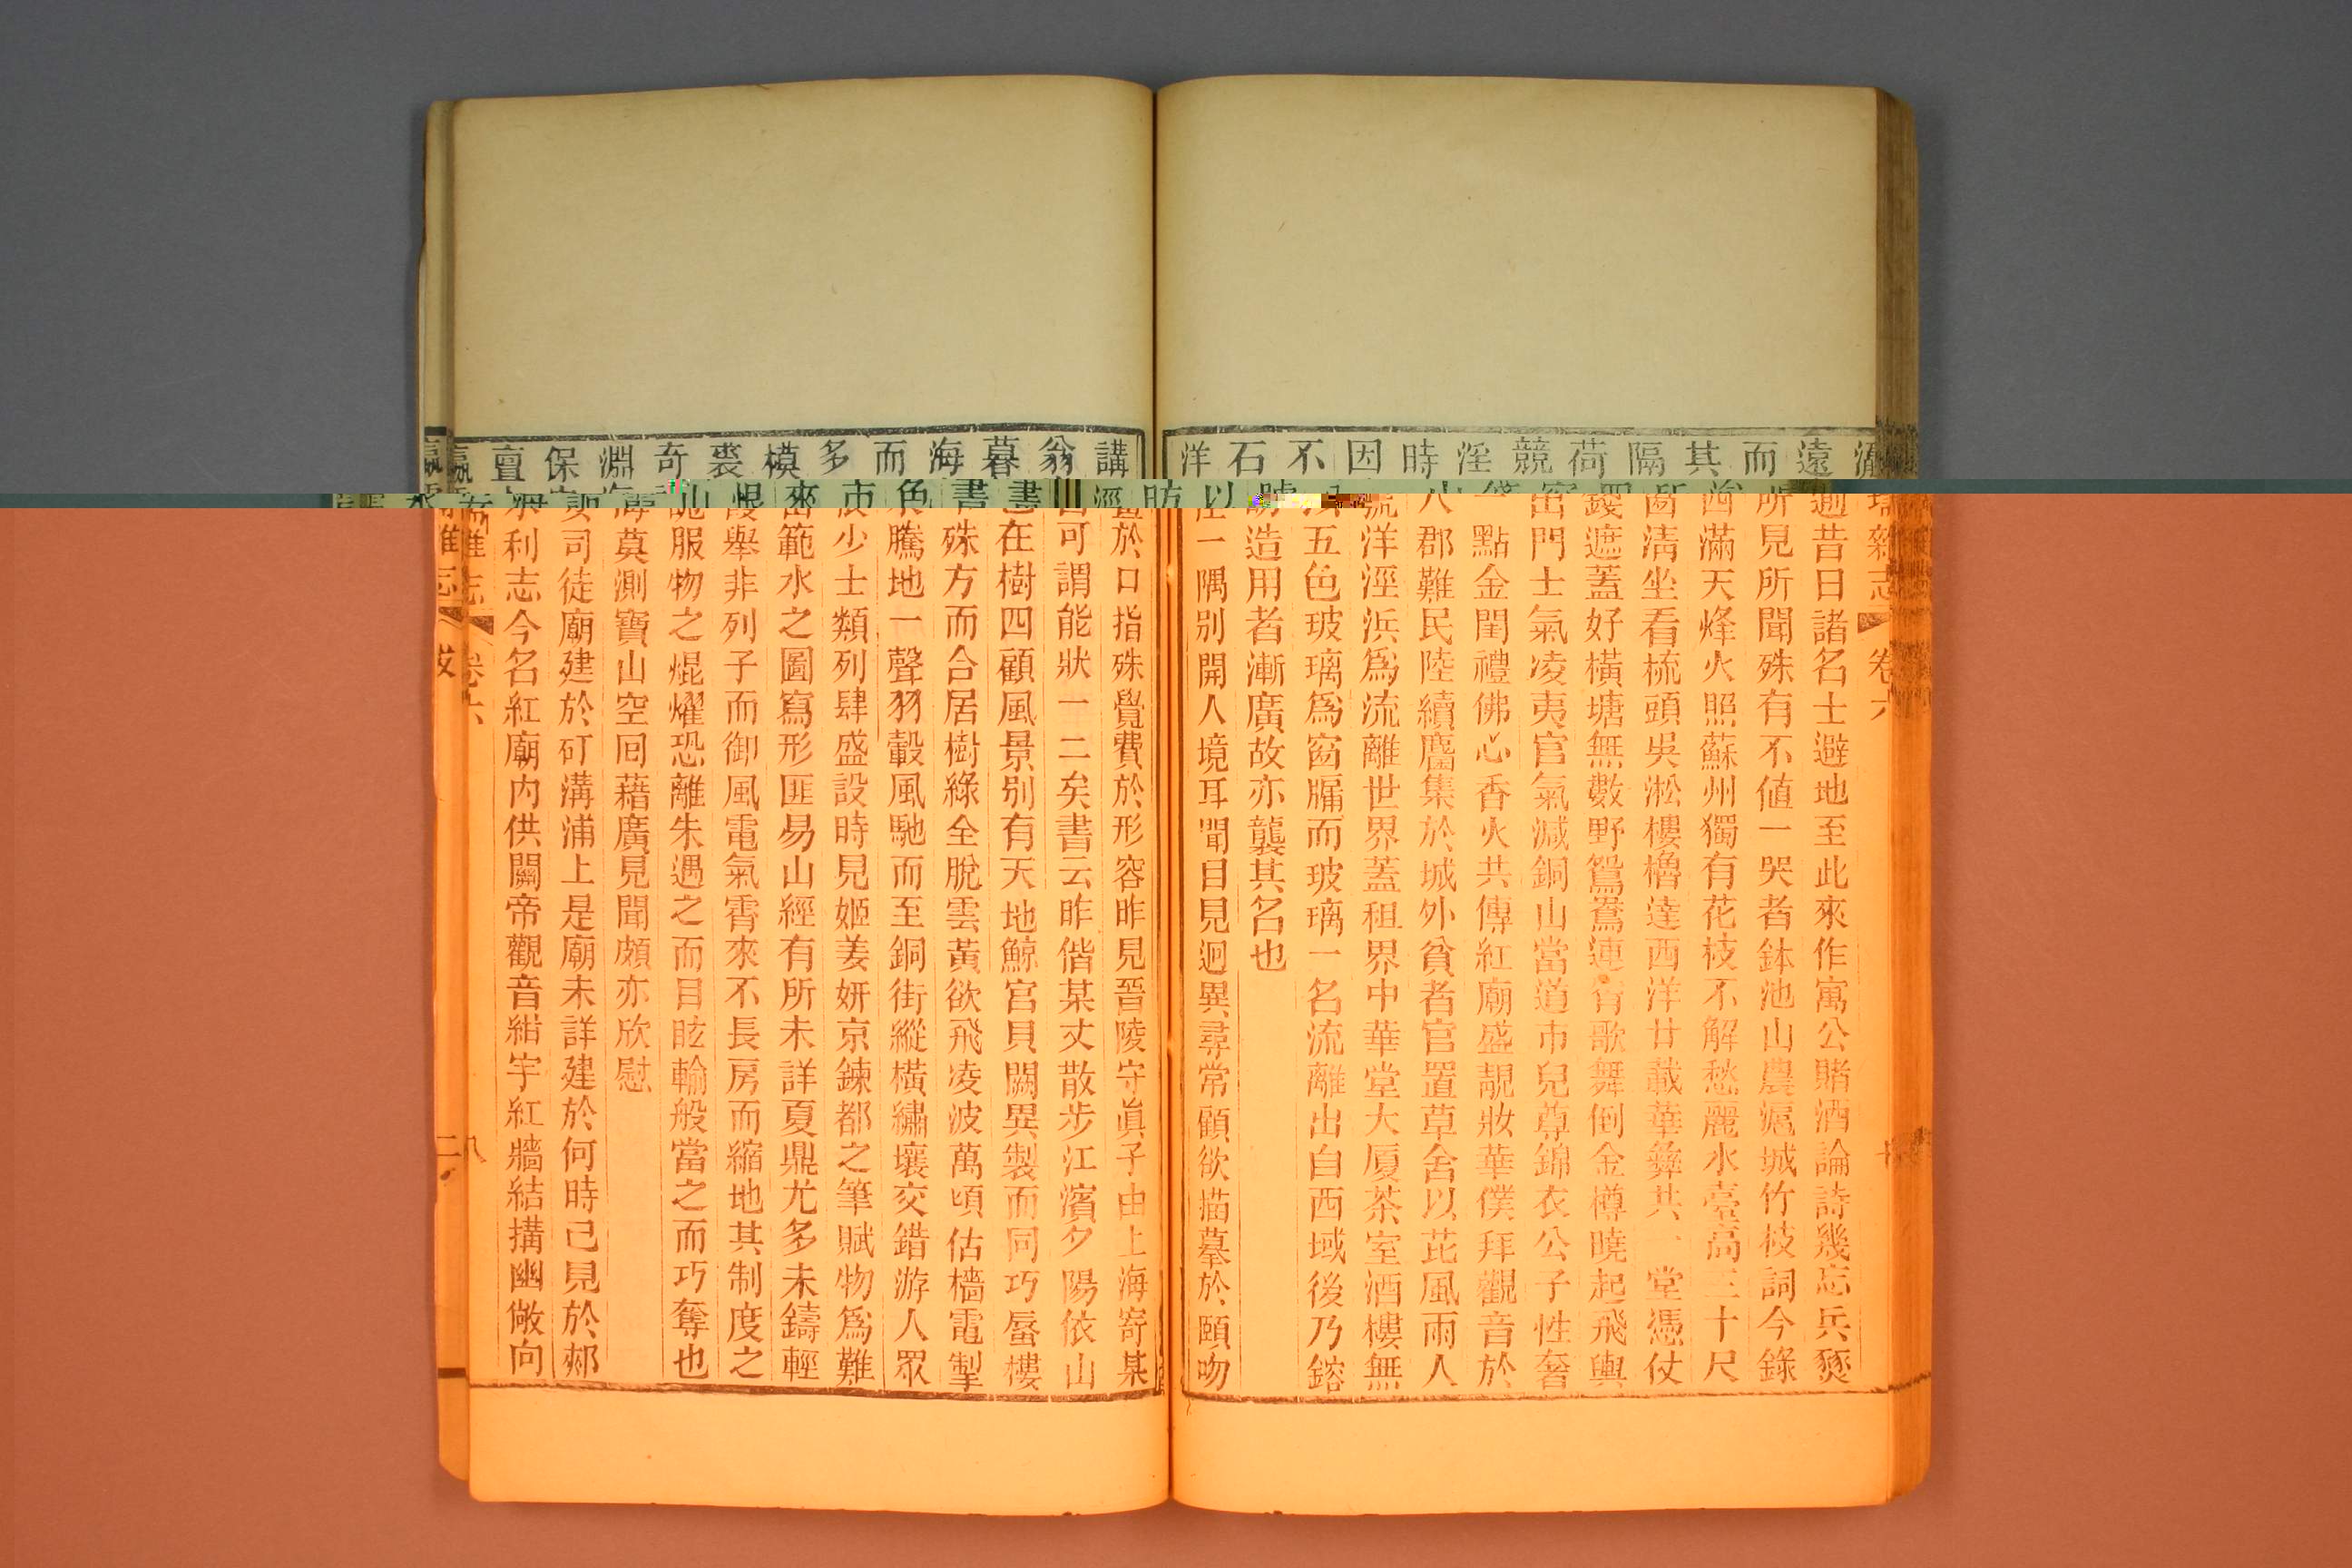 瀛壖雜志 卷六
遠遁昔日諸名士避地至此來作寓公賭酒論詩幾忘兵燹
而所見所聞殊有不値一哭者鉢池山農滬城竹枝詞今錄
其滿天烽火照蘇州獨有花枝不解愁麗水臺高三十尺
隔窗清坐看梳頭吳淞樓櫓達西洋廿載華彝共一堂憑仗
荷遮蓋好橫塘無數野鴛鴦連宵歌舞倒金樽曉起飛輿
競出門士氣凌夷官氣減銅山當道市兒尊錦衣公子性奢
淫一點金閨禮佛心香火共傳紅廟盛靚妝華僕拜觀音於
時八郡難民陸續麕集於城外貧者官置草舍以芘風雨人
因號洋涇浜爲流離世界蓋租界中華堂大厦茶室酒樓無
不以五色玻璃爲窗牖而玻璃一名流離出自西域後乃鎔
石造用者漸廣故亦襲其名也
洋涇一隅別開人境耳聞目見迥異尋常顧欲描摹於頤吻
講於口指殊覺費於形容昨見晉陵守眞子由上海寄某
翁書可謂能狀一二矣書云昨偕某丈散步江濱夕陽依山
暮在樹四顧風景別有天地鯨宮貝闕異製而同巧蜃樓
海殊方而合居樹綠全脫雲黃欲飛凌波萬頃估檣電掣
而騰地一聲羽轂風馳而至銅街縱橫繡壤交錯游人眾
多少士類列肆盛設時見姬姜姸京鍊都之筆賦物爲難
模範水之圖寫形匪易山經有所未詳夏鼎尤多未鑄輕
裘舉非列子而御風電氣霄來不長房而縮地其制度之
奇服物之焜燿恐離朱遇之而目眩輸般當之而巧奪也
淵莫測寶山空回藉廣見聞頗亦欣慰
保司徒廟建於矴溝浦上是廟未詳建於何時已見於郟
亶利志今名紅廟內供關帝觀音紺宇紅牆結搆幽敞向
瀛雜志 卷六 八
瀛雜志 跋 二